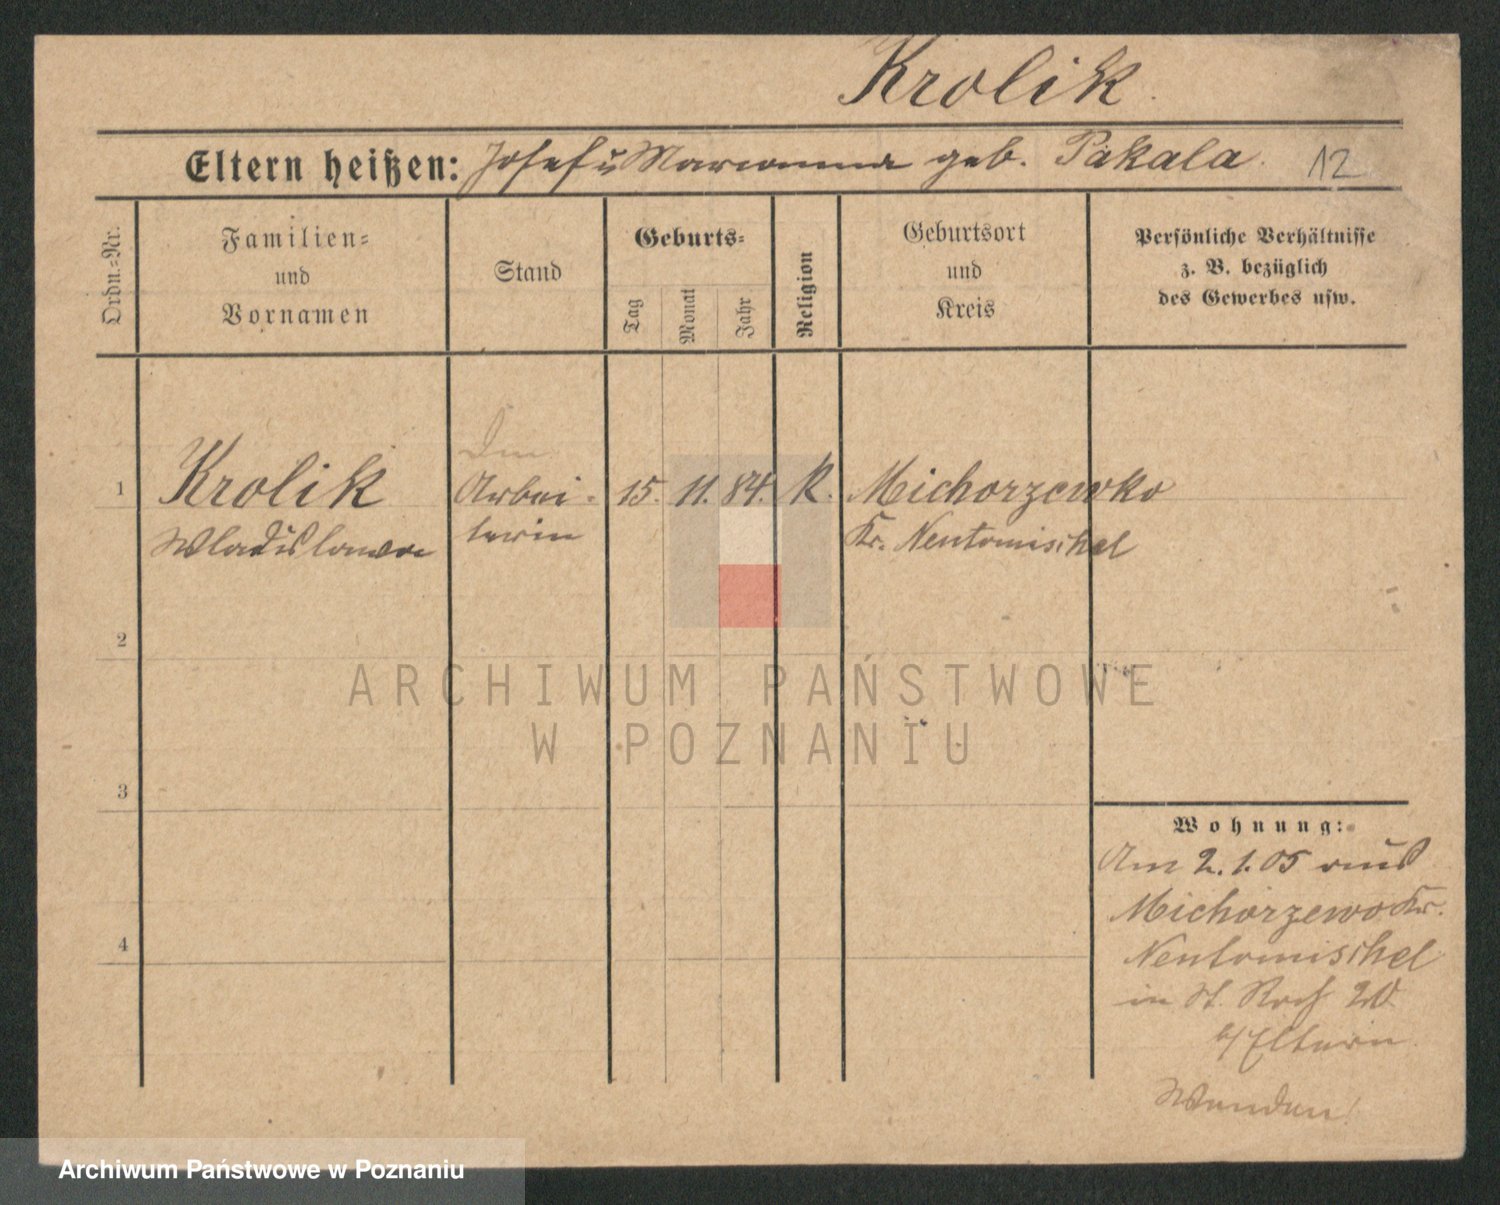 Krolik
Eltern heißen: Josef u Marianna geb. Pakala.
12
Ordn.=Nr.
Familien=
und
Vornamen
Stand
Geburts=
Tag
Monat
Jahr
Religion
Geburtsort
und
Kreis
Persönliche Verhältnisse
z. B. bezüglich
des Gewerbes usw.
1
Krolik
Wladislawa
Arbei=
terin
15. 11. 84. K.
Michorzewko
Kr. Neutomischel
2
3
4
Wohnung:
Am 2.1.05 aus
Michorzewo Kr.
Neutomischel
in St. Roch 20
b/Eltern
Wenden!
ARCHIWUM PAŃSTWOWE
W POZNANIU
Archiwum Państwowe w Poznaniu